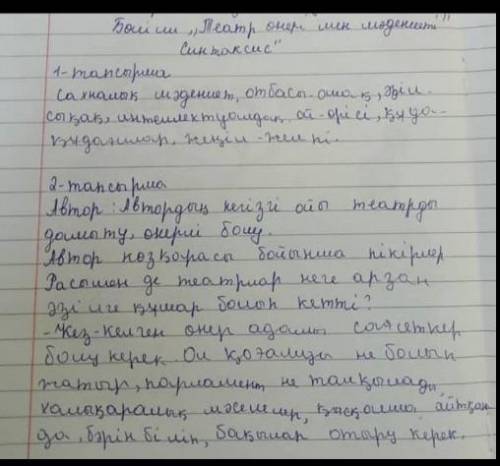 Бөлім „Театр өнер мен мәдениеті"
Синтаксис"
1-тапсырма
Сахналық мәдениет, отбасы-ошақ, әзіл-
сықақ, интеллектуалдық ой-өрісі, құда-
құдағилар, жеңіл-желпі.
2-тапсырма
Автор: Автордың негізгі ойы театрды
дамыту, өнерлі болу.
Автор көзқарасы бойынша пікірлер
Расымен де театрлар неге арзан
әзілге құмар болып кетті?
-Кез-келген өнер адамы саясеткер
болу керек. Ол қоғамда не болып
жатыр, парламент не талқылады,
халықаралық мәселелер, қысқаша айтқан
да, бәрін біліп, бақылар отыру керек.